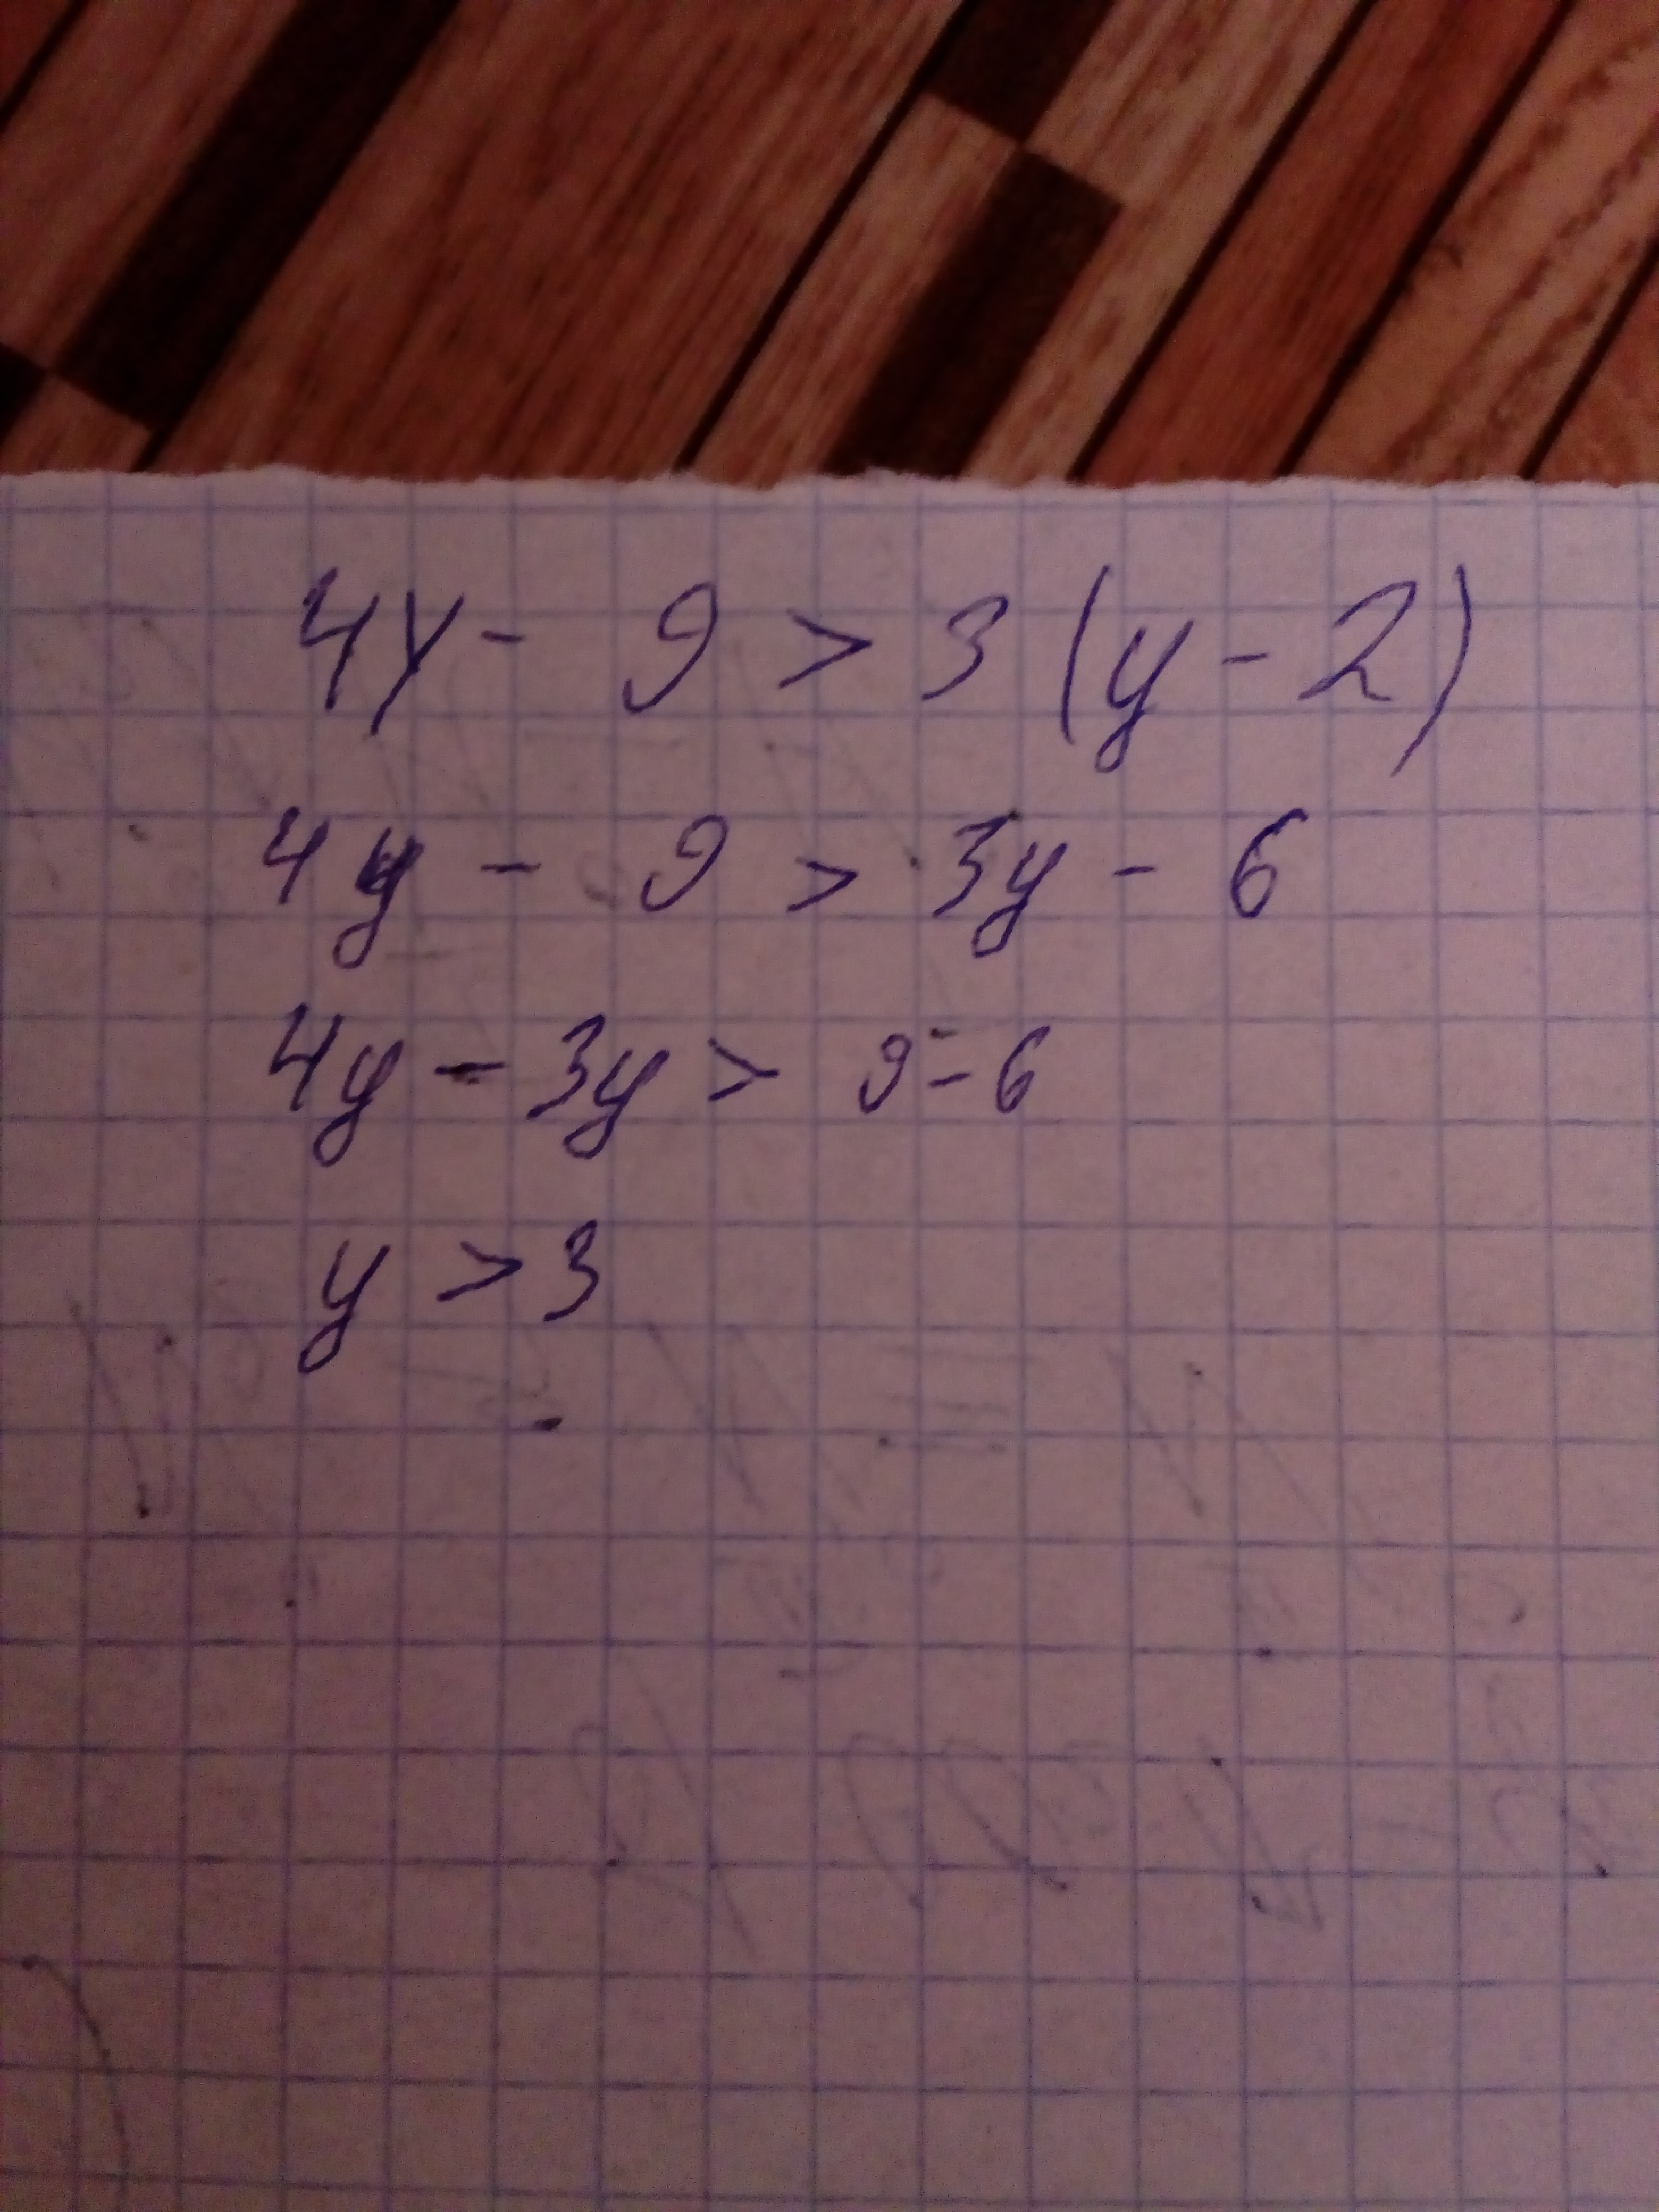 4y - 9 > 3 (y - 2)
4y - 9 > 3y - 6
4y - 3y > 9 - 6
y > 3